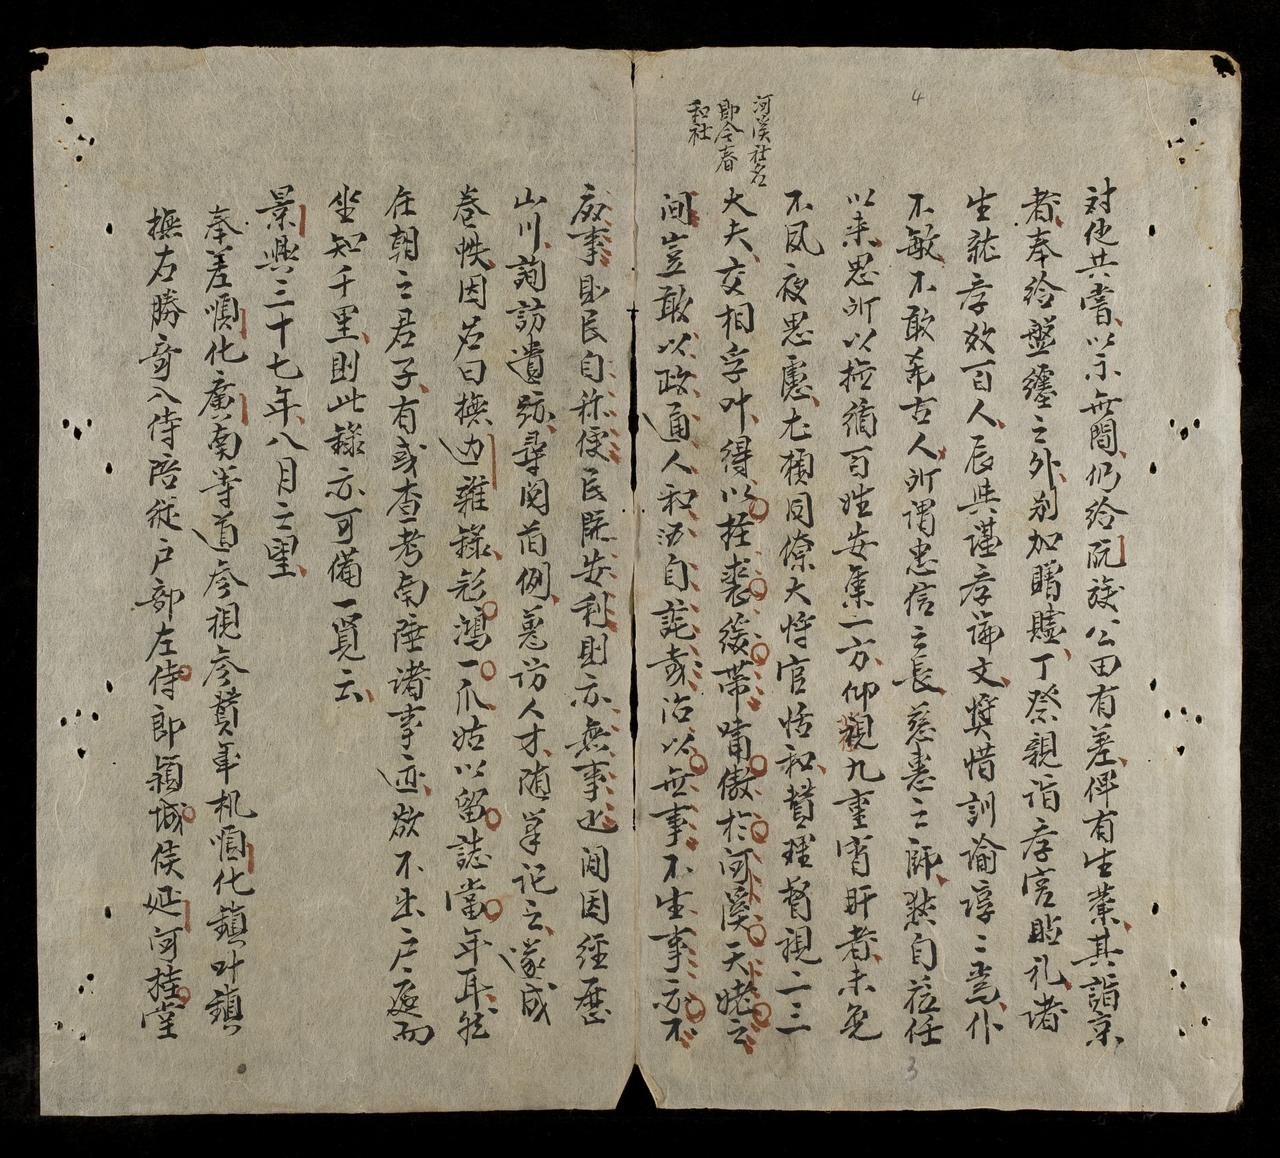 4
河溪社名
即今春
和社
対他共嘗以示無間仍給阮族公田有差俾有生業其詣京
者奉給盤纏之外别加贈贐丁祭親詣孝宫貼礼诸
生就孝效百人辰與谨孝論文奬惜訓諭諄〻焉仆
不敏不敢希古人所谓忠信之長慈惠之師然自莅任
以来思所以拊循百姓安集一方仰觀九重宵旰者未免
不夙夜思慮尤頼同僚大将官恬和賛理督視二三
大夫交相孚叶得以抂裘緩帯嘯傲於河溪天姥之
间豈敢以政通人和沾自詫或治以無事不生事亦不
廢事則民自称便民既安利則亦無事也间因經歷
山川詢訪遺跡尋阅前例蒐访人才随筆记之遂成
巻帙因名曰撫边雜録飛鴻一爪姑以留誌當年耳然
在朝之君子有或查考南陲诸事迹欲不出户庭而
坐知千里則此録亦可備一覧云
景興三十七年八月之望
奉差順化廣南等道参視参賛軍机順化鎮叶鎮
撫右勝奇八侍陪従户部左侍郎穎城侯延河桂堂
3